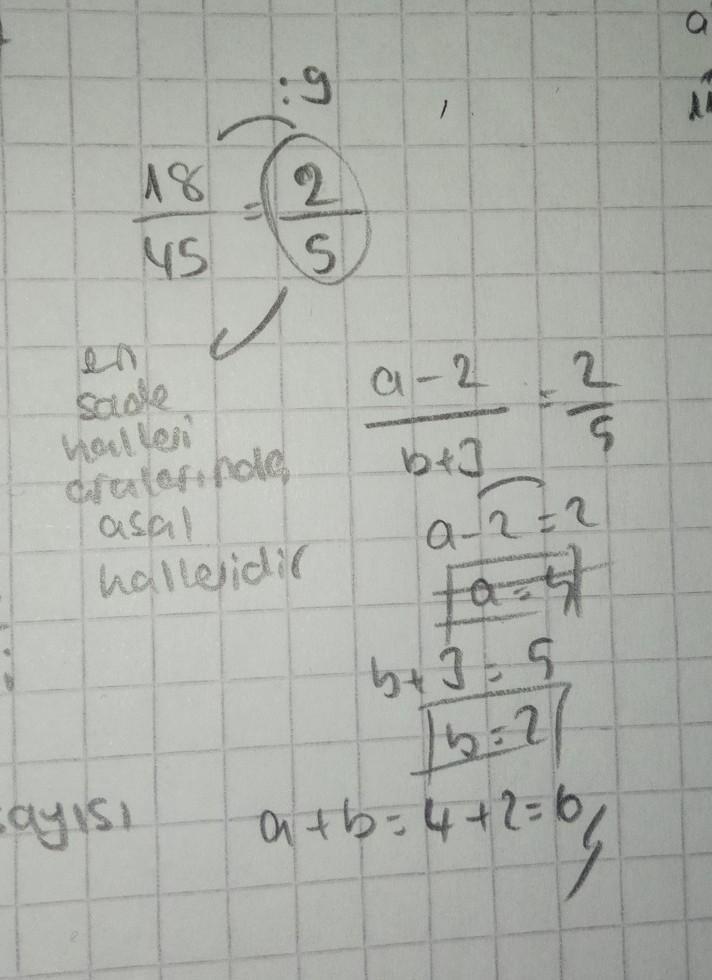 :9
18/45 = 2/5
en
sade
halleri
aralarında
asal
halleridir
a-2/b+3 = 2/5
a-2=2
a=4
b+3=5
b=2
ayısı
a+b=4+2=6
a